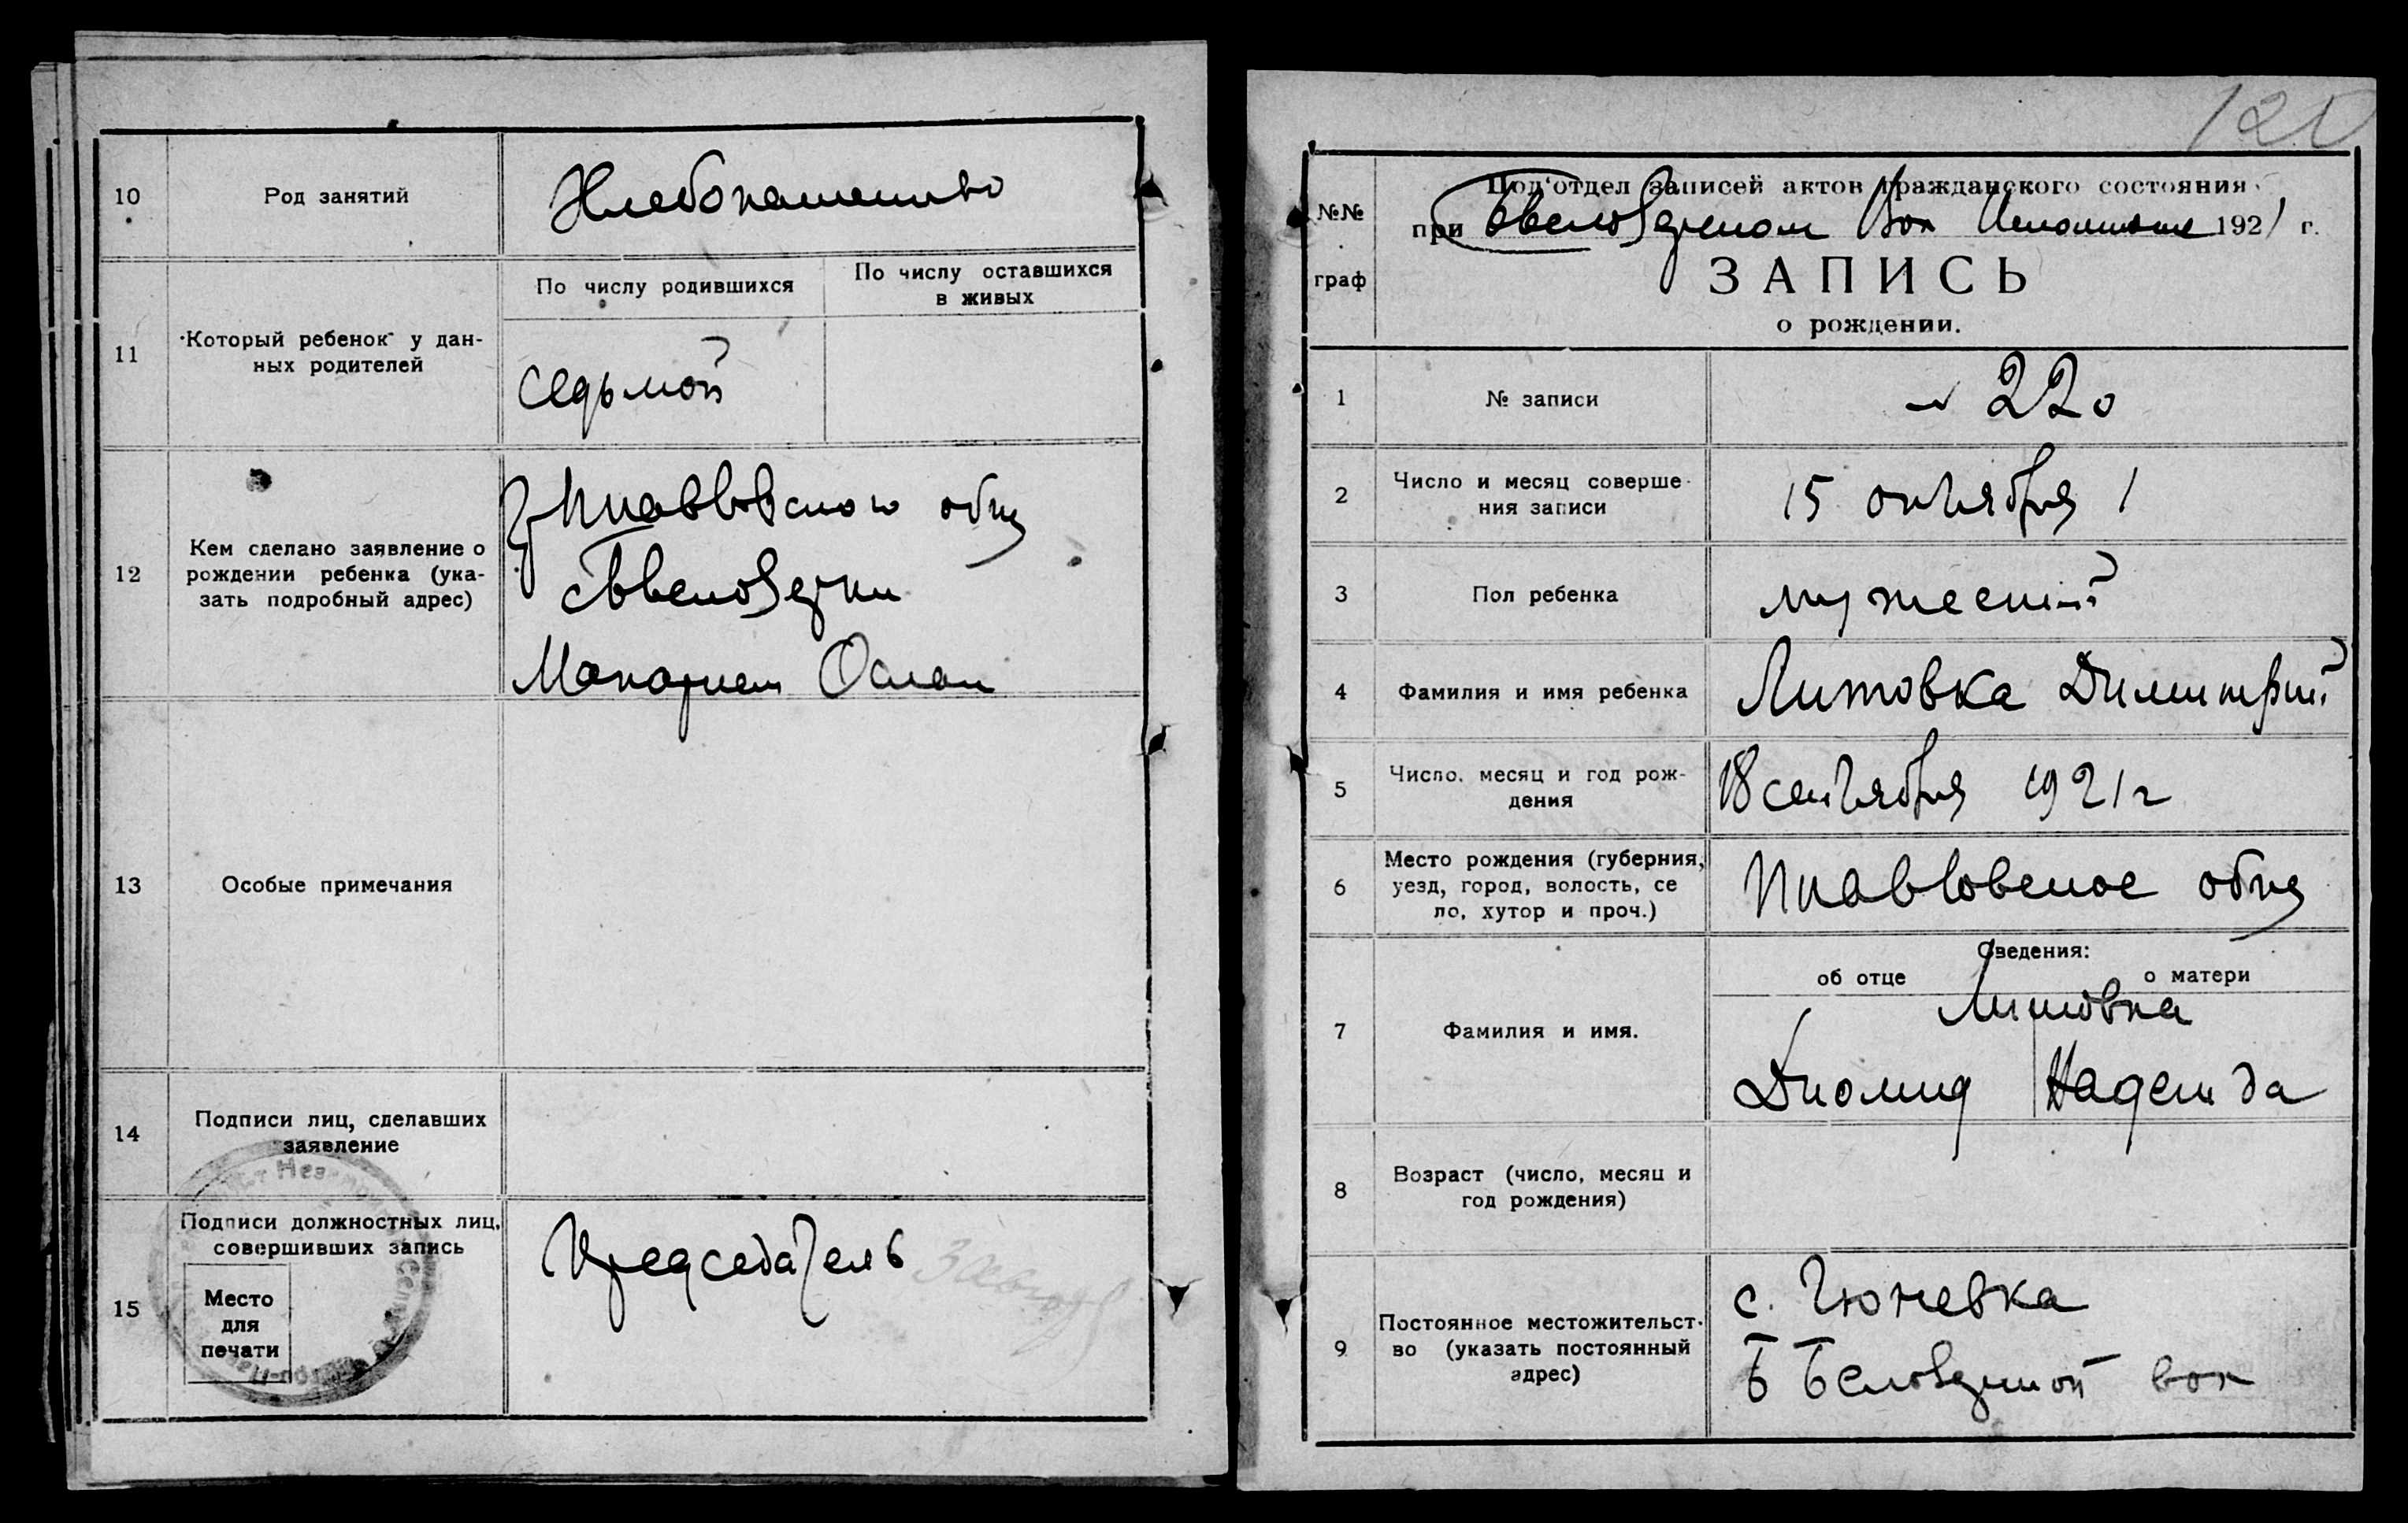 10
Род занятий
Хлебопашество
11
Который ребенок у дан-
ных родителей
По числу родившихся
По числу оставшихся
в живых
седьмой
12
Кем сделано заявление о
рождении ребенка (ука-
зать подробный адрес)
общ
13
Особые примечания
14
Подписи лиц, сделавших
заявление
15
Подписи должностных лиц,
совершивших запись
Место
для
печати
Председатель
120
№№
граф
Под'отдел записей актов гражданского состояния
при Вол 1921 г.
ЗАПИСЬ
о рождении.
1
№ записи
220
2
Число и месяц соверше-
ния записи
15 октября 1
3
Пол ребенка
мужеский
4
Фамилия и имя ребенка
Литовка Димитрий
5
Число, месяц и год рож-
дения
18 сентября 1921 г
6
Место рождения (губерния,
уезд, город, волость, се
ло, хутор и проч.)
общ
Сведения:
об отце
о матери
7
Фамилия и имя.
Литовка
Диомид
Надежда
8
Возраст (число, месяц и
год рождения)
9
Постоянное местожительст-
во (указать постоянный
адрес)
с. Гюневка
Б Белозерской вол